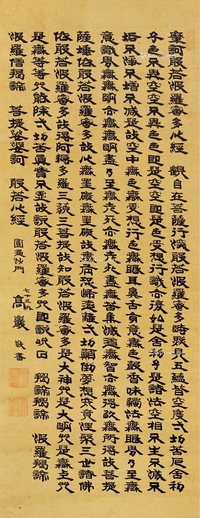 摩訶般若波羅蜜多心經 觀自在菩薩行深般若波羅蜜多時照見五蘊皆空度一切苦厄舍利
子色不異空空不異色色即是空空即是色受想行識亦復如是舍利子是諸法空相不生不滅不
垢不淨不增不減是故空中無色無受想行識無眼耳鼻舌身意無色聲香味觸法無眼界乃至無
意識界無無明亦無無明盡乃至無老死亦無老死盡無苦集滅道無智亦無得以無所得故菩提
薩埵依般若波羅蜜多故心無罣礙無罣礙故無有恐怖遠離一切顛倒夢想究竟涅槃三世諸佛
依般若波羅蜜多故得阿耨多羅三藐三菩提故知般若波羅蜜多是大神咒是大明咒是無上咒
是無等等咒能除一切苦真實不虛故說般若波羅蜜多咒即說咒曰 揭諦揭諦 波羅揭諦
波羅僧揭諦 菩提娑婆訶 般若心經
圓通沙門
高巖 敬書